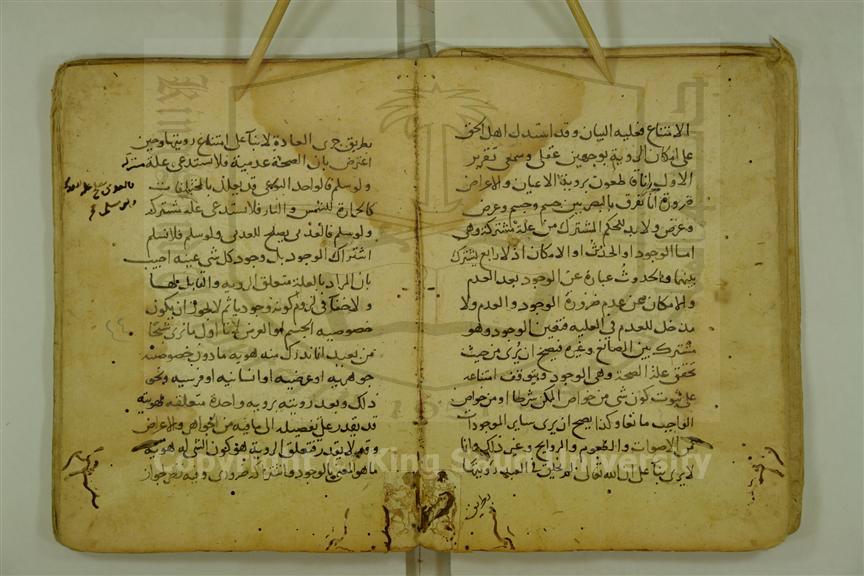 الامتناع فعليه البيان وقد استدل اهل الحق
على امكان الروية بوجهين عقلي وسمعي تقرير
الاول انا قاطعون بروية الاعيان والاعراض
ضرورة انا نفرق بالبصر بين جسم وجسم وعرض
وعرض ولا بد للحكم المشترك من علة مشتركة وهي
اما الوجود او الحدوث او الامكان اذ لا رابع يشترك
بينهما والحدوث عبارة عن الوجود بعد العدم
والامكان عن عدم ضرورة الوجود والعدم ولا
مدخل للعدم في العليه فتعين الوجود وهو
مشترك بين الصانع وغيره فيصح ان يرى من حيث
تحقق علة الصحة وهي الوجود ويتوقف امتناعه
على ثبوت كون شي من خواص الممكن شرطا او من خواص
الواجب مانعا وكذا يصح ان يرى ساير الموجودات
من الاصوات والطعوم والروايح وغير ذلك وانما
لا يرى بنا على ان الله تعالى لم يخلق في العبد رويتها
بطريق
بطريق جرى العادة لا بنا على امتناع رويتها وحين
اعترض بان الصحة عدمية فلا تستدعي علة مشتركة
ولو سلم فالواحد النوعي قد يعلل بالمختلفات
كالحرارة للشمس والنار فلا تستدعي علة مشتركة
ولو سلم فالعدمي يصلح للعدمي ولو سلم فلا نسلم
اشتراك الوجود بل وجود كل شي عينه اجيب
بان المراد بالعلة متعلق الروية والقابل لها
ولا خفا في لزوم كونه وجوديا ثم لا يجوز ان يكون
خصوصيه الجسم او العرض لانا اول ما نرى شبحا
من بعيد انما ندرك منه هوية ما دون خصوصية
جوهريه او عرضيه او انسانيه او فرسيه ونحو
ذلك وبعد رويته بروية واحدة متعلقه بهويته
قد يقدر على تفصيله الى ما فيه من الجواهر والاعراض
وقد لا يقدر فمتعلق الروية هو كون الشي له هوية
ما وهو المعني بالوجود واشتراكه ضروري وفيه نظر لجواز